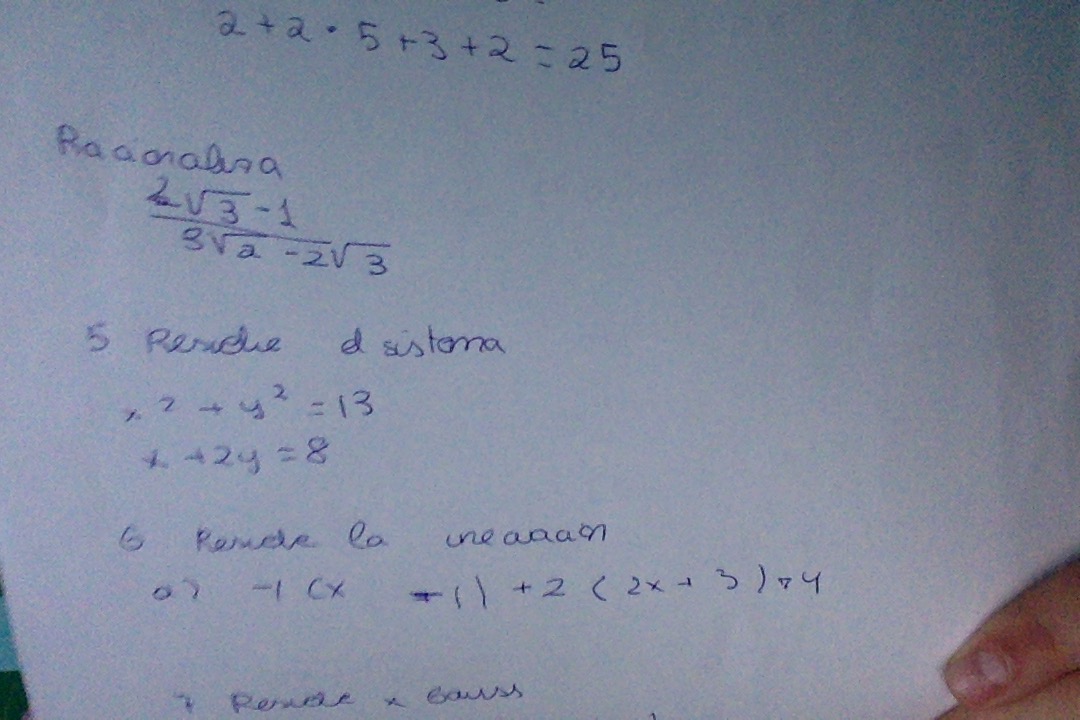 2 + 2 · 5 + 3 + 2 = 25
Racionaliza
2√3 - 1
3√2 - 2√3
5 Resuelve el sistema
x² + y² = 13
x + 2y = 8
6 Resuelve la inecuacion
a) -1 (x - 1) + 2 ( 2x + 3 ) > 4
7 Resuelve x Gauss